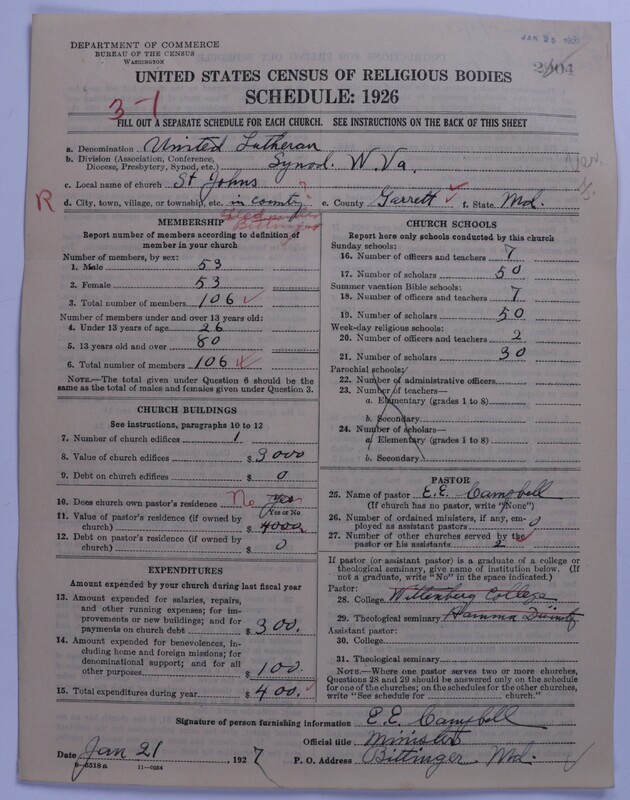 JAN 25 1927
DEPARTMENT OF COMMERCE
BUREAU OF THE CENSUS
WASHINGTON
UNITED STATES CENSUS OF RELIGIOUS BODIES
SCHEDULE: 1926
3-1
FILL OUT A SEPARATE SCHEDULE FOR EACH CHURCH. SEE INSTRUCTIONS ON THE BACK OF THIS SHEET
a. Denomination United Lutheran
b. Division (Association, Conference, Diocese, Presbytery, Synod, etc.) Synod. W. Va.
c. Local name of church St Johns
R d. City, town, village, or township, etc. in county ? e. County Garrett f. State Md.
Bittinger
MEMBERSHIP
Report number of members according to definition of member in your church
Number of members, by sex:
1. Male 53
2. Female 53
3. Total number of members 106
Number of members under and over 13 years old:
4. Under 13 years of age 26
5. 13 years old and over 80
6. Total number of members 106
NOTE.—The total given under Question 6 should be the same as the total of males and females given under Question 3.
CHURCH BUILDINGS
See instructions, paragraphs 10 to 12
7. Number of church edifices 1
8. Value of church edifices $ 3000
9. Debt on church edifices $ 0
10. Does church own pastor's residence No Yes
Yes or No
11. Value of pastor's residence (if owned by church) $ 4000
12. Debt on pastor's residence (if owned by church) $ 0
EXPENDITURES
Amount expended by your church during last fiscal year
13. Amount expended for salaries, repairs, and other running expenses; for improvements or new buildings; and for payments on church debt $ 300.
14. Amount expended for benevolences, including home and foreign missions; for denominational support; and for all other purposes $ 100.
15. Total expenditures during year $ 400.
CHURCH SCHOOLS
Report here only schools conducted by this church
Sunday schools:
16. Number of officers and teachers 7
17. Number of scholars 50
Summer vacation Bible schools:
18. Number of officers and teachers 7
19. Number of scholars 50
Week-day religious schools:
20. Number of officers and teachers 2
21. Number of scholars 30
Parochial schools:
22. Number of administrative officers
23. Number of teachers—
a. Elementary (grades 1 to 8)
b. Secondary
24. Number of scholars—
a. Elementary (grades 1 to 8)
b. Secondary
PASTOR
25. Name of pastor E. E. Campbell
(If church has no pastor, write "None")
26. Number of ordained ministers, if any, employed as assistant pastors 0
27. Number of other churches served by the pastor or his assistants 2
If pastor (or assistant pastor) is a graduate of a college or theological seminary, give name of institution below. (If not a graduate, write "No" in the space indicated.)
Pastor:
28. College Wittenberg College
29. Theological seminary Hamma Divinity
Assistant pastor:
30. College
31. Theological seminary
NOTE.—Where one pastor serves two or more churches, Questions 28 and 29 should be answered only on the schedule for one of the churches; on the schedules for the other churches, write "See schedule for church."
Signature of person furnishing information E. E. Campbell
Official title Minister
Date Jan 21, 1927 P. O. Address Bittinger Md.
8-5518a 11-9034